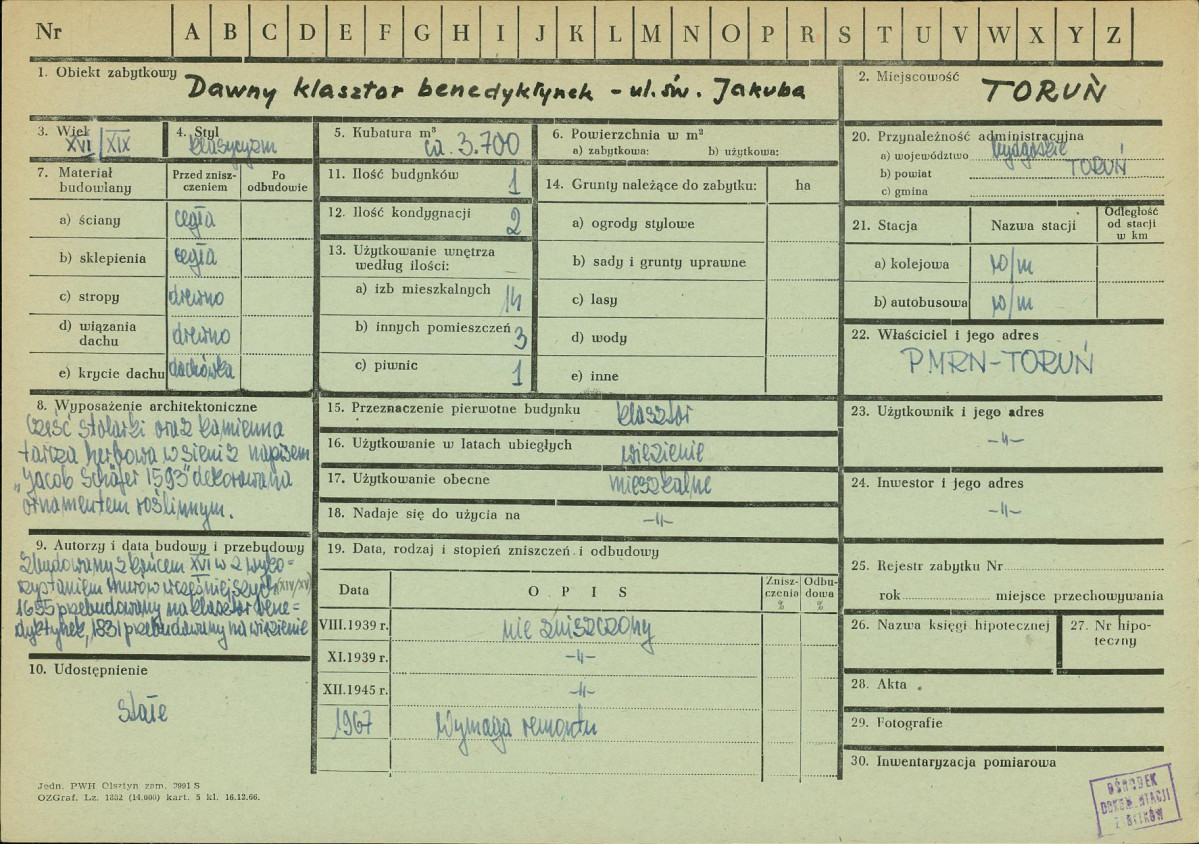 Nr A B C D E F G H I J K L M N O P R S T U V W X Y Z
1. Obiekt zabytkowy Dawny klasztor benedyktynek - ul. św. Jakuba
2. Miejscowość TORUŃ
3. Wiek XVI/XIX
4. Styl klasycyzm
5. Kubatura m³ ca. 3.700
6. Powierzchnia w m²
a) zabytkowa: b) użytkowa:
7. Materiał budowlany
Przed znisz-
czeniem
Po
odbudowie
a) ściany cegła
b) sklepienia cegła
c) stropy drewno
d) wiązania
dachu drewno
e) krycie dachu dachówka
11. Ilość budynków 1
12. Ilość kondygnacji 2
13. Użytkowanie wnętrza
według ilości:
a) izb mieszkalnych 14
b) innych pomieszczeń 3
c) piwnic 1
14. Grunty należące do zabytku: ha
a) ogrody stylowe
b) sady i grunty uprawne
c) lasy
d) wody
e) inne
20. Przynależność administracyjna
a) województwo bydgoskie
b) powiat TORUŃ
c) gmina
21. Stacja Nazwa stacji
Odległość
od stacji
w km
a) kolejowa w/m
b) autobusowa w/m
22. Właściciel i jego adres
PMRN-TORUŃ
8. Wyposażenie architektoniczne
Część stolarki oraz kamienna
tarcza herbowa w sieni z napisem
„Jacob Schäfer 1593" dekorowana
ornamentem roślinnym.
15. Przeznaczenie pierwotne budynku klasztor
16. Użytkowanie w latach ubiegłych więzienie
17. Użytkowanie obecne mieszkalne
18. Nadaje się do użycia na -"-
23. Użytkownik i jego adres
-"-
24. Inwestor i jego adres
-"-
9. Autorzy i data budowy i przebudowy
Zbudowany z końcem XVI w z wyko=
rzystaniem murów wcześniejszych (XIV/XV)
1655 przebudowany na klasztor bene=
dyktynek, 1831 przebudowany na więzienie
10. Udostępnienie
stałe
19. Data, rodzaj i stopień zniszczeń i odbudowy
Data OPIS
Znisz-
czenia
%
Odbu-
dowa
%
VIII.1939 r. nie zniszczony
XI.1939 r. -"-
XII.1945 r. -"-
1967 Wymaga remontu
25. Rejestr zabytku Nr
rok miejsce przechowywania
26. Nazwa księgi hipotecznej
27. Nr hipo-
teczny
28. Akta
29. Fotografie
30. Inwentaryzacja pomiarowa
Jedn. PWH Olsztyn zam. 7991 S
OZGraf. Lz. 1852 (14.000) kart. 5 kl. 16.12.66.
OŚRODEK
DOKUMENTACJI
ZABYTKÓW